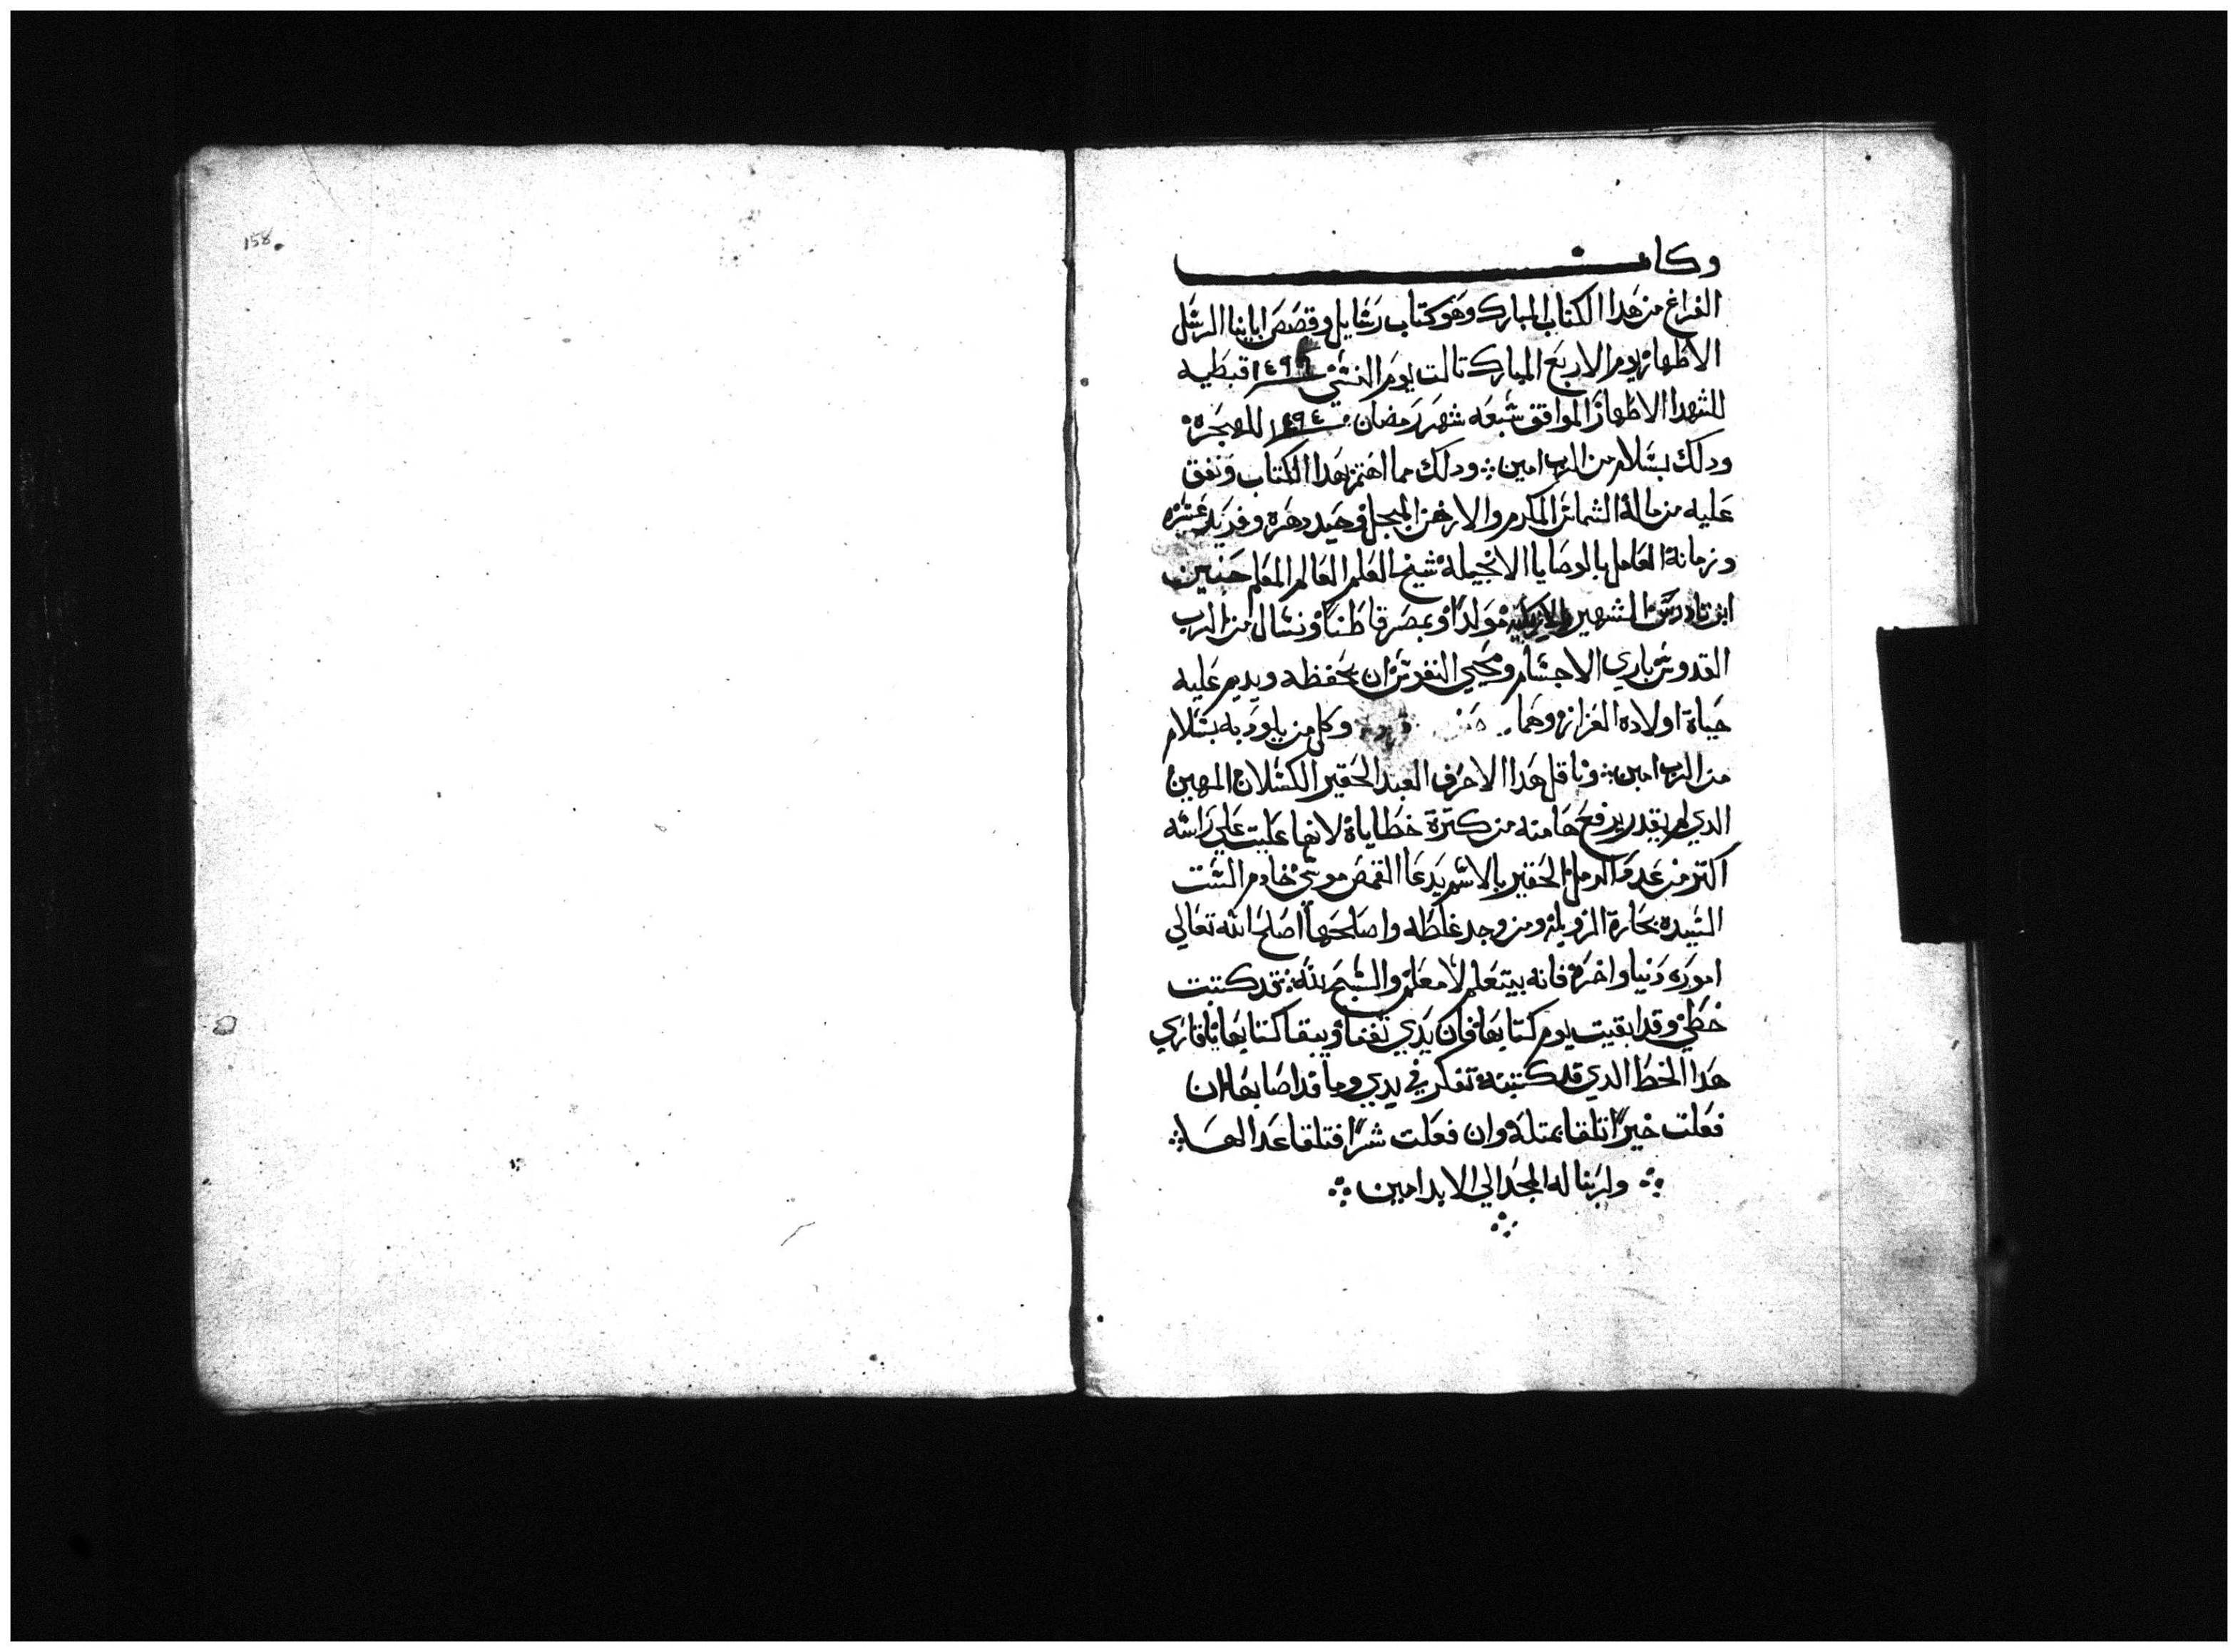 158
وكان
الفراغ من هدا الكتاب المبارك وهو كتاب رسايل وقصص اباينا الرسل
الاطهار يوم الاربع المبارك تالت يوم النسي ١٤٩٦ قبطيه
للشهدا الاطهار الموافق سبعه شهر رمضان للهجرة
ودلك بسلام من الرب امين ودلك مما اهتم بهدا الكتاب ونفق
عليه من ماله الشماس المكرم والارخن المبجل وحيد دهره وفريد عصره
وزمانه العامل بالوصايا الانجيليه شيخ العلم العالم المعلم حنين
ابن تادرس الشهير مولدا وبمصر قاطنا ونسال من الرب
القدوس باري الاجسام ومحيي النفوس ان يحفظه ويديم عليه
حياة اولاده العزاز وهما وكل من يلود به بسلام
من الرب امين وناقل هدا الاحرف العبد الحقير الكسلان المهين
الدي لم يقدر يرفع هامته من كترة خطاياة لانها علت علي راسه
اكتر من عدد الرمل الحقير بالاسم يدعا القمص موسي خادم الست
السيده بحارة الزويله ومن وجد غلطه واصلحها اصلح الله تعالي
اموره دنيا واخرة فانه بيتعلم لا معلم والسبح لله قد كتبت
خطي وقد ايقيت يوم كتابها فان يدي تفنا ويبقا كتابها يا قاري
هدا الخط الدي قد كتبته تفكر في يدي وما قد اصابها ان
فعلت خيرا تلقا بمتله وان فعلت شرا فتلقا عدالها
ولربنا له المجد الي الابد امين